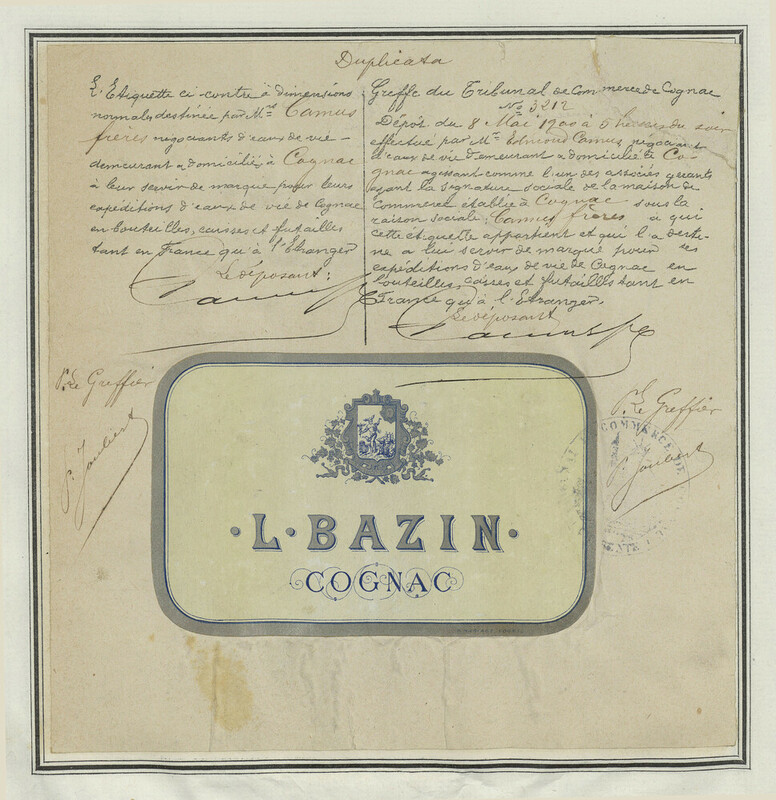 Duplicata
L'Etiquette ci contre à dimensions
normales destinée par Mrs Camus
frères négociants d'eaux de vie
demeurant & domiciliés à Cognac
à leur servir de marque pour leurs
expéditions d'eaux de vie de Cognac
en bouteilles, caisses et futailles
tant en France qu'à l'Etranger
Le déposant:
Greffe du Tribunal de Commerce de Cognac
No 3212
Dépôt du 8 Mai 1900 à 5 heures du soir
effectué par Mr Edmond Camus négociant
d'eaux de vie demeurant & domicilié à Co-
gnac agissant comme l'un des associés gérants
ayant la signature sociale de la maison de
Commerce établie à Cognac sous la
raison sociale: Camus frères à qui
cette étiquette appartient et qui l'a desti-
né à lui servir de marque pour ses
expéditions d'eaux de vie de Cognac en
bouteilles, caisses et futailles tant en
France qu'à l'Etranger.
Le déposant
P. Le Greffier
P. Joubert
P. Le Greffier
P. Joubert
COMMERCE DE
·L·BAZIN·
COGNAC